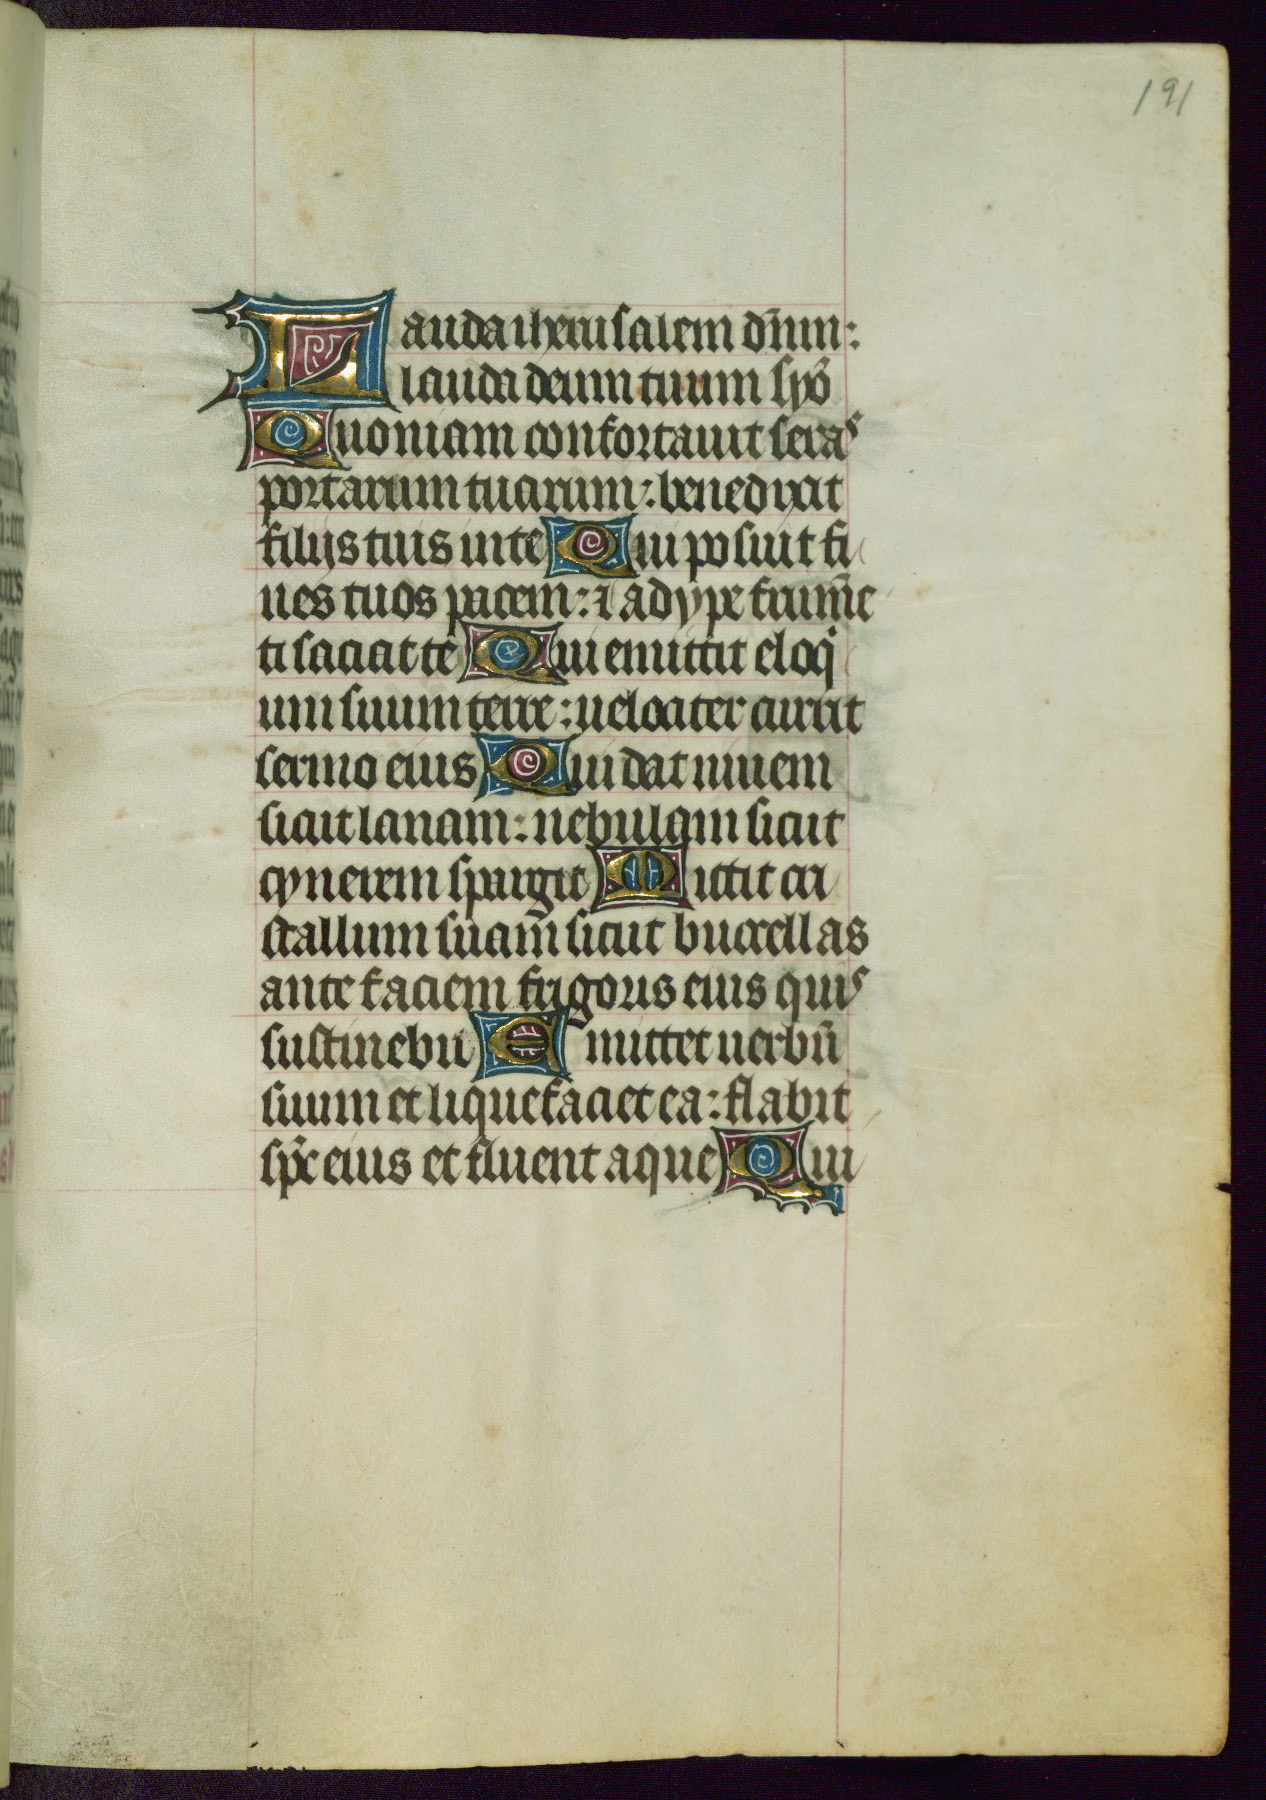 191
Lauda iherusalem dñm:
lauda deum tuum syō
Quoniam confortauit seras
portarum tuarum: benedixit
filijs tuis inte Qui posuit fi
nes tuos pacem: ⁊ adype frum̄e
ti saciat te Qui emittit eloq
ium suum terre: uelociter currit
sermo eius Qui dat niuem
sicut lanam: nebulam sicut
cynerem spargit Mittit cri
stallum suam̄ sicut bucellas
ante faciem frigoris eius quis
sustinebit Emittet uerbū
suum et liquefaciet ea: flabit
sp̄c eius et fluent aque Qui